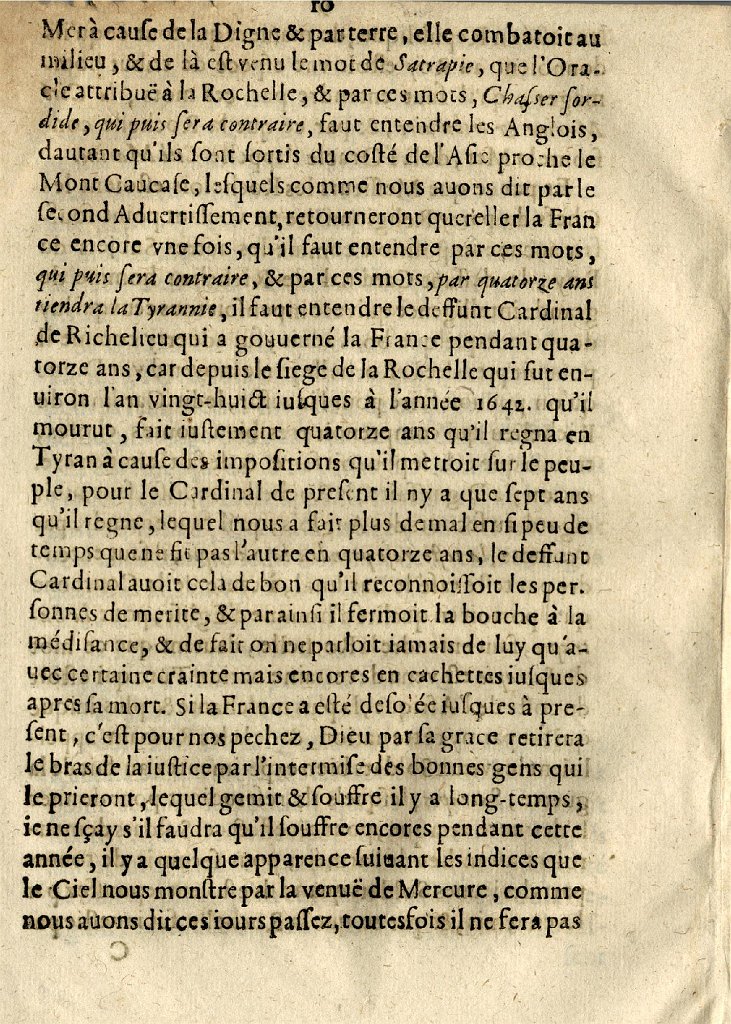 10
Mer à cauſe de la Digne & par terre, elle combatoit au
milieu, & de là eſt venu le mot de Satrapie, que l'Ora-
cle attribuë à la Rochelle, & par ces mots, Chaſſer ſor-
dide, qui puis ſera contraire, faut entendre les Anglois,
dautant qu'ils ſont ſortis du coſté de l'Aſie proche le
Mont Caucaſe, leſquels comme nous auons dit par le
ſecond Aduertiſſement, retourneront quereller la Fran
ce encore vne fois, qu'il faut entendre par ces mots,
qui puis ſera contraire, & par ces mots, par quatorze ans
tiendra la Tyrannie, il faut entendre le deffunt Cardinal
de Richelieu qui a gouuerné la France pendant qua-
torze ans, car depuis le ſiege de la Rochelle qui fut en-
uiron l'an vingt-huict iuſques à l'année 1642. qu'il
mourut, fait iuſtement quatorze ans qu'il regna en
Tyran à cauſe des impoſitions qu'il mettoit ſur le peu-
ple, pour le Cardinal de preſent il ny a que ſept ans
qu'il regne, lequel nous a fait plus de mal en ſi peu de
temps que ne fit pas l'autre en quatorze ans, le deffunt
Cardinal auoit cela de bon qu'il reconnoiſſoit les per.
ſonnes de merite, & par ainſi il fermoit la bouche à la
médiſance, & de fait on ne parloit iamais de luy qu'a-
uec certaine crainte mais encores en cachettes iuſques
apres ſa mort. Si la France a eſté deſolée iuſques à pre-
ſent, c'eſt pour nos pechez, Dieu par ſa grace retirera
le bras de la iuſtice par l'intermiſe des bonnes gens qui
le prieront, lequel gemit & ſouffre il y a long-temps,
ie ne ſçay s'il faudra qu'il ſouffre encores pendant cette
année, il y a quelque apparence ſuiuant les indices que
le Ciel nous monſtre par la venuë de Mercure, comme
nous auons dit ces iours paſſez, toutesfois il ne fera pas
C